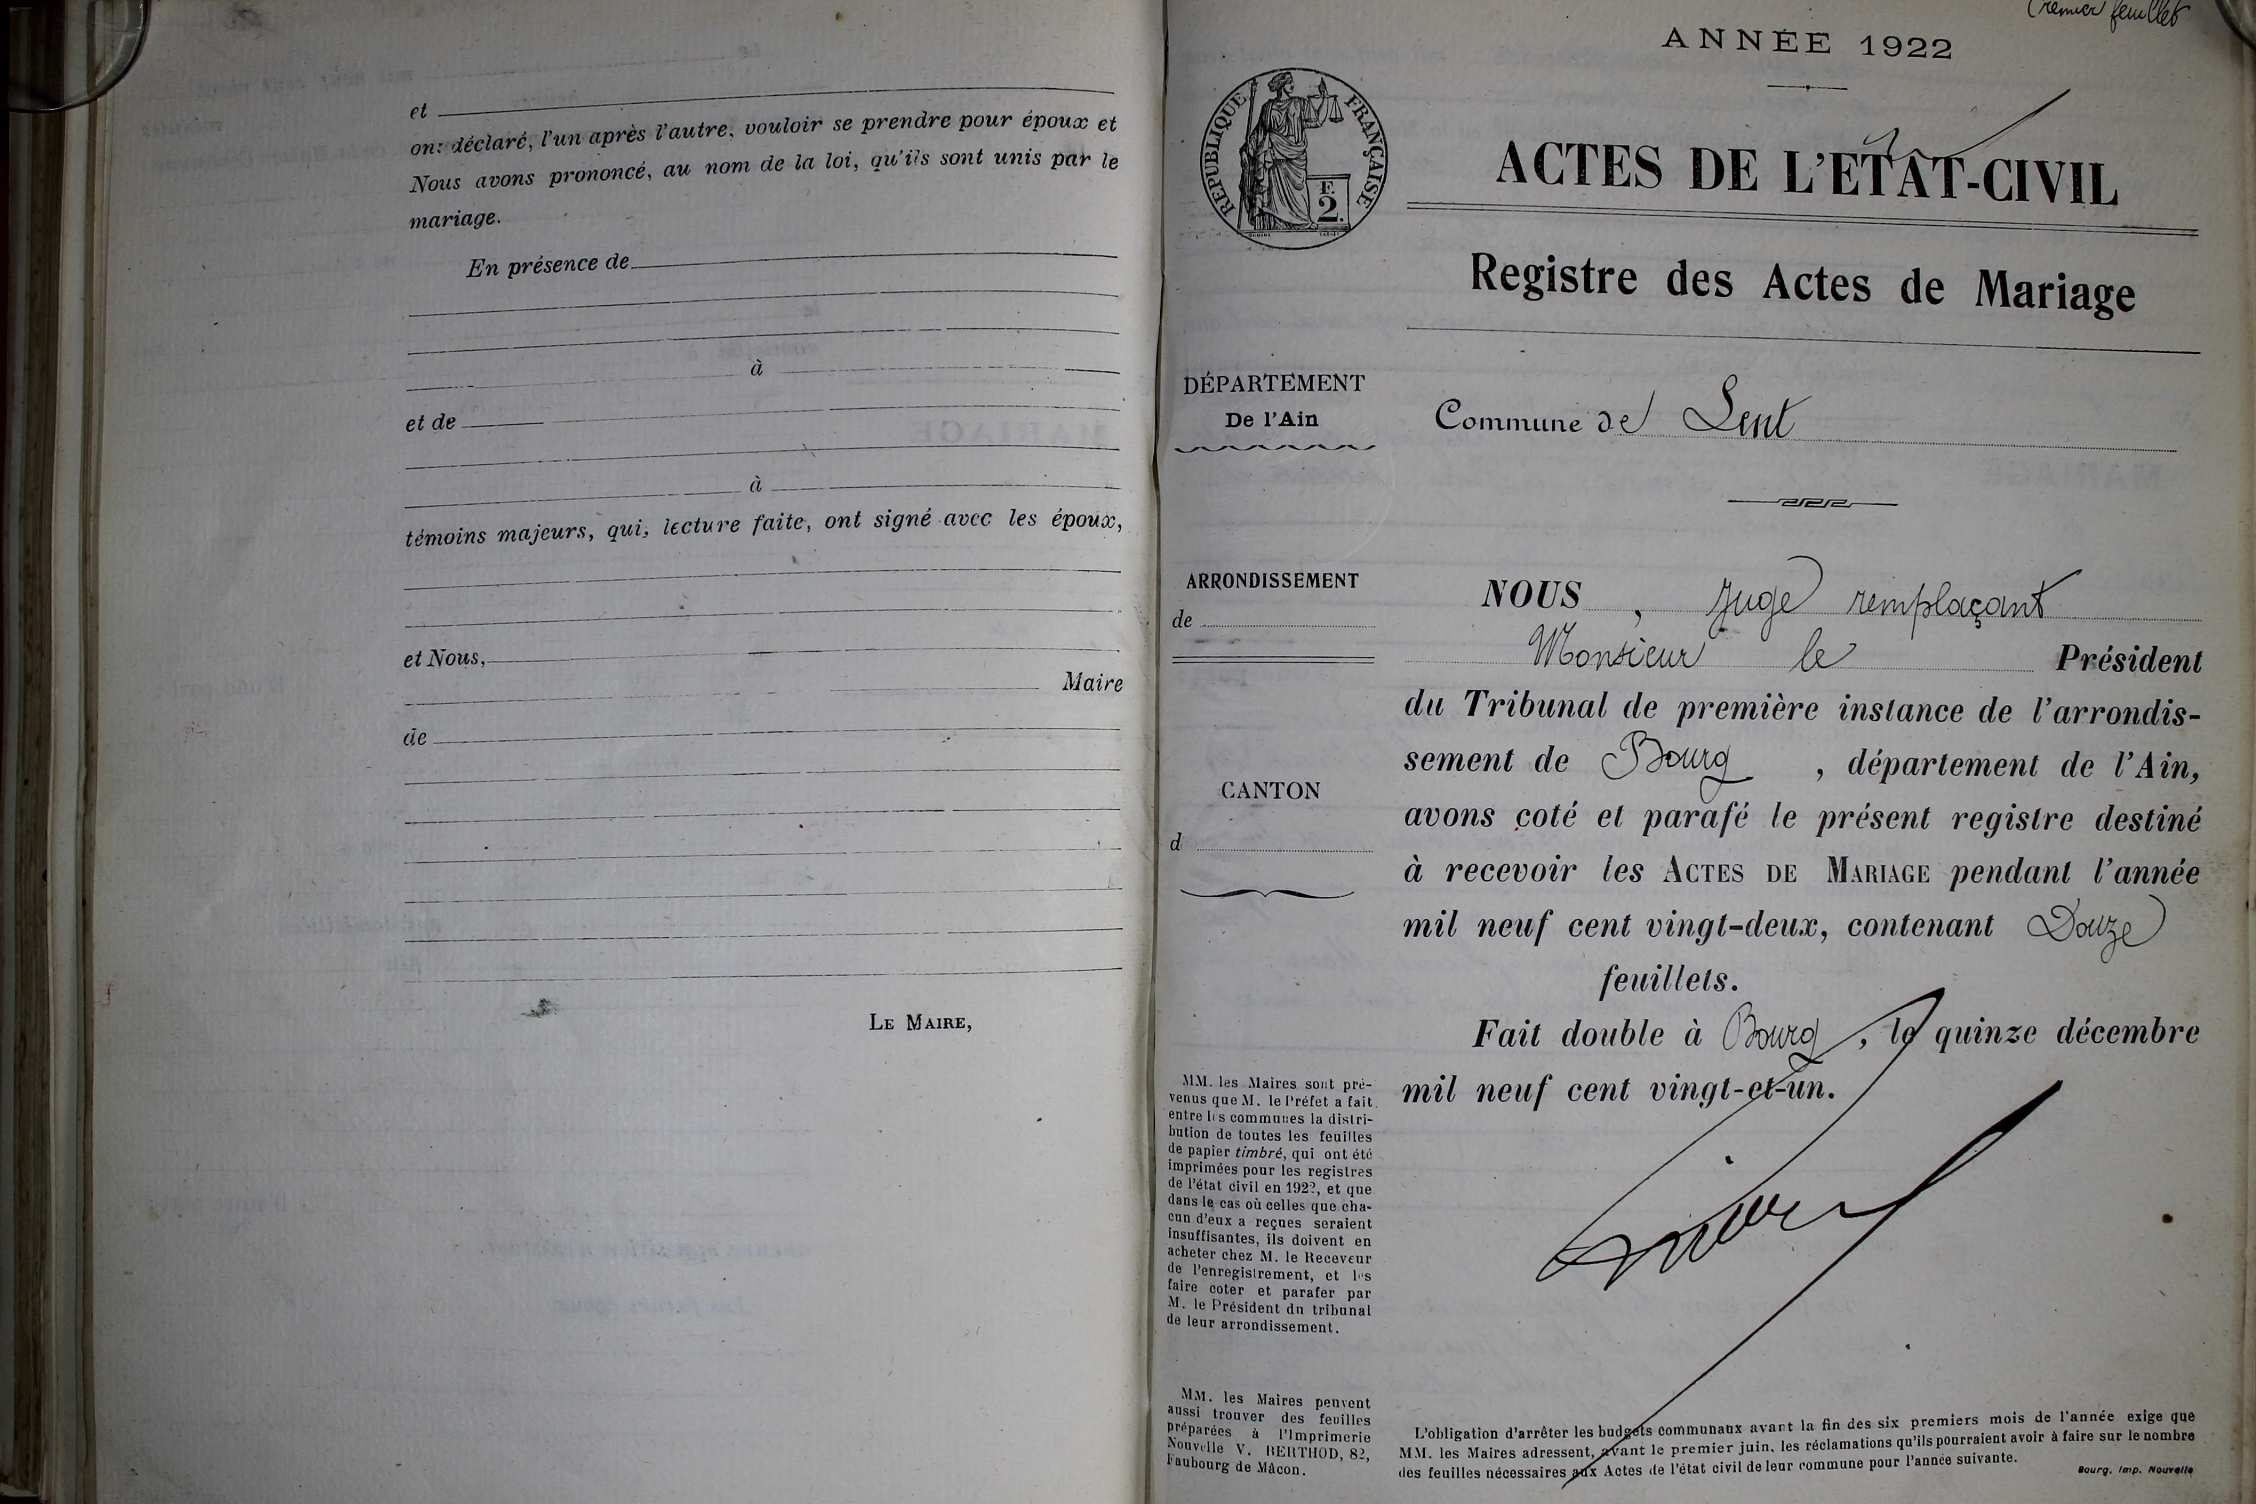 et
ont déclaré, l'un après l'autre, vouloir se prendre pour époux et
Nous avons prononcé, au nom de la loi, qu'ils sont unis par le
mariage.
En présence de
à
et de
à
témoins majeurs, qui, lecture faite, ont signé avec les époux,
et Nous,
Maire
de
LE MAIRE,
Premier feuillet
ANNÉE 1922
RÉPUBLIQUE FRANÇAISE
F.
2.
ACTES DE L'ETAT-CIVIL
Registre des Actes de Mariage
DÉPARTEMENT
De l'Ain
Commune de Lent
ARRONDISSEMENT
de
CANTON
d
NOUS , Juge remplaçant
Monsieur le Président
du Tribunal de première instance de l'arrondis-
sement de Bourg , département de l'Ain,
avons coté et parafé le présent registre destiné
à recevoir les ACTES DE MARIAGE pendant l'année
mil neuf cent vingt-deux, contenant Douze
feuillets.
Fait double à Bourg , le quinze décembre
mil neuf cent vingt-et-un.
MM. les Maires sont pré-
venus que M. le Préfet a fait
entre les communes la distri-
bution de toutes les feuilles
de papier timbré, qui ont été
imprimées pour les registres
de l'état civil en 1922, et que
dans le cas où celles que cha-
cun d'eux a reçues seraient
insuffisantes, ils doivent en
acheter chez M. le Receveur
de l'enregistrement, et les
faire coter et parafer par
M. le Président du tribunal
de leur arrondissement.
MM. les Maires peuvent
aussi trouver des feuilles
préparées à l'Imprimerie
Nouvelle V. BERTHOD, 82,
Faubourg de Mâcon.
L'obligation d'arrêter les budgets communaux avant la fin des six premiers mois de l'année exige que
MM. les Maires adressent, avant le premier juin, les réclamations qu'ils pourraient avoir à faire sur le nombre
des feuilles nécessaires aux Actes de l'état civil de leur commune pour l'année suivante.
Bourg. Imp. Nouvelle